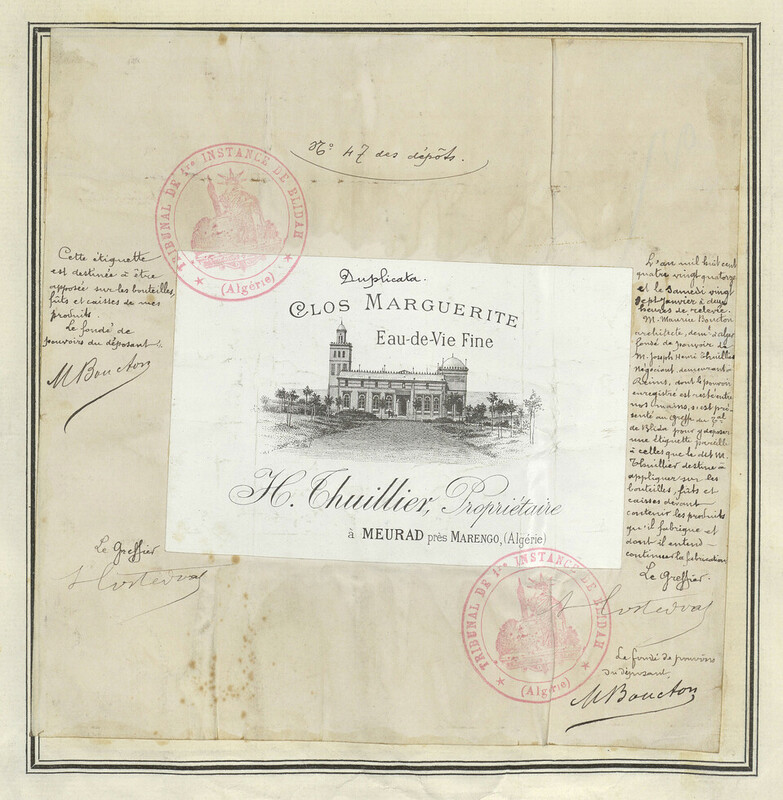 No 47 des dépôts.
TRIBUNAL DE 1re INSTANCE DE BLIDAH
(Algérie)
Cette étiquette
est destinée à être
apposée sur les bouteilles,
fûts et caisses de mes
produits.
Le fondé de
pouvoirs du déposant
MBoucton
Duplicata.
CLOS MARGUERITE
Eau-de-Vie Fine
H. Thuillier, Propriétaire
à MEURAD près MARENGO, (Algérie)
L'an mil huit cent
quatre vingt quatorze
et le Samedi vingt
sept Janvier à deux
heures de relevée.
M. Maurice Boucton
architecte, demt à Alger
fondé de pouvoir de
M. Joseph Henri Thuillier
Négociant, demeurant à
Reims, dont le pouvoir
enregistré est resté entre
nos mains, s'est pré
senté au Greffe du
de Blida pour y déposer
une étiquette pareille
à celles que le dit M.
Thuillier destine à
appliquer sur les
bouteilles, fûts et
caisses devant
contenir les produits
qu'il fabrique et
dont il entend
continuer la fabrication
Le Greffier.
Le Greffier
TRIBUNAL DE 1re INSTANCE DE BLIDAH
(Algérie)
Le fondé de pouvoirs
du déposant
M Boucton